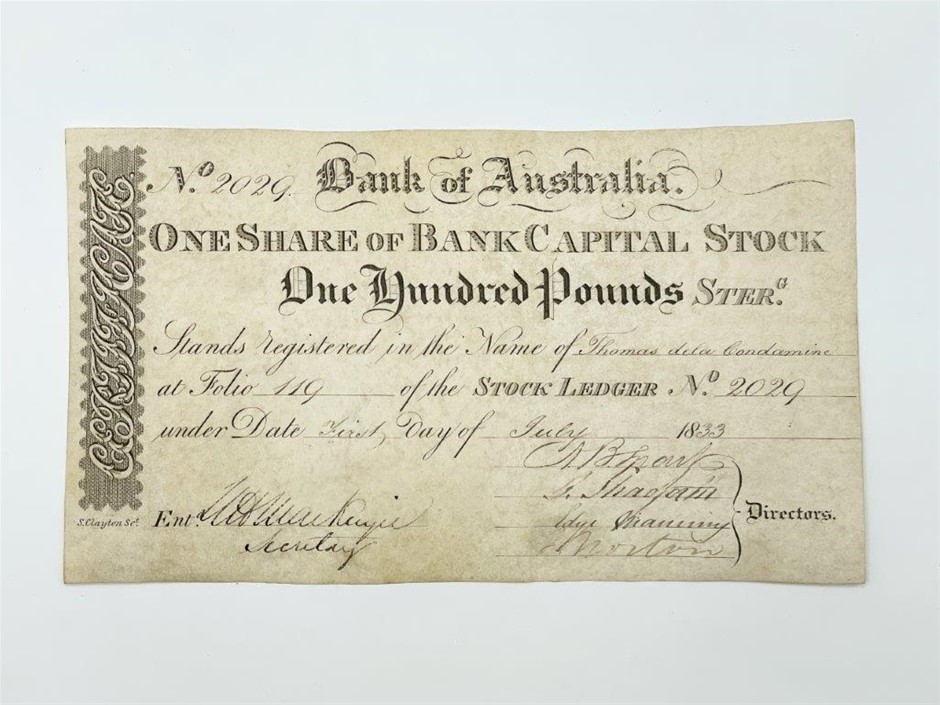 CERTIFICATE
No. 2029. Bank of Australia.
ONE SHARE OF BANK CAPITAL STOCK
One Hundred Pounds STERG.
Stands registered in the Name of Thomas de la Condamine
at Folio 119 of the STOCK LEDGER No. 2029
under Date First Day of July 1833
Entd.
Secretary
Edye Manning
Norton
Directors.
S. Clayton Sct.